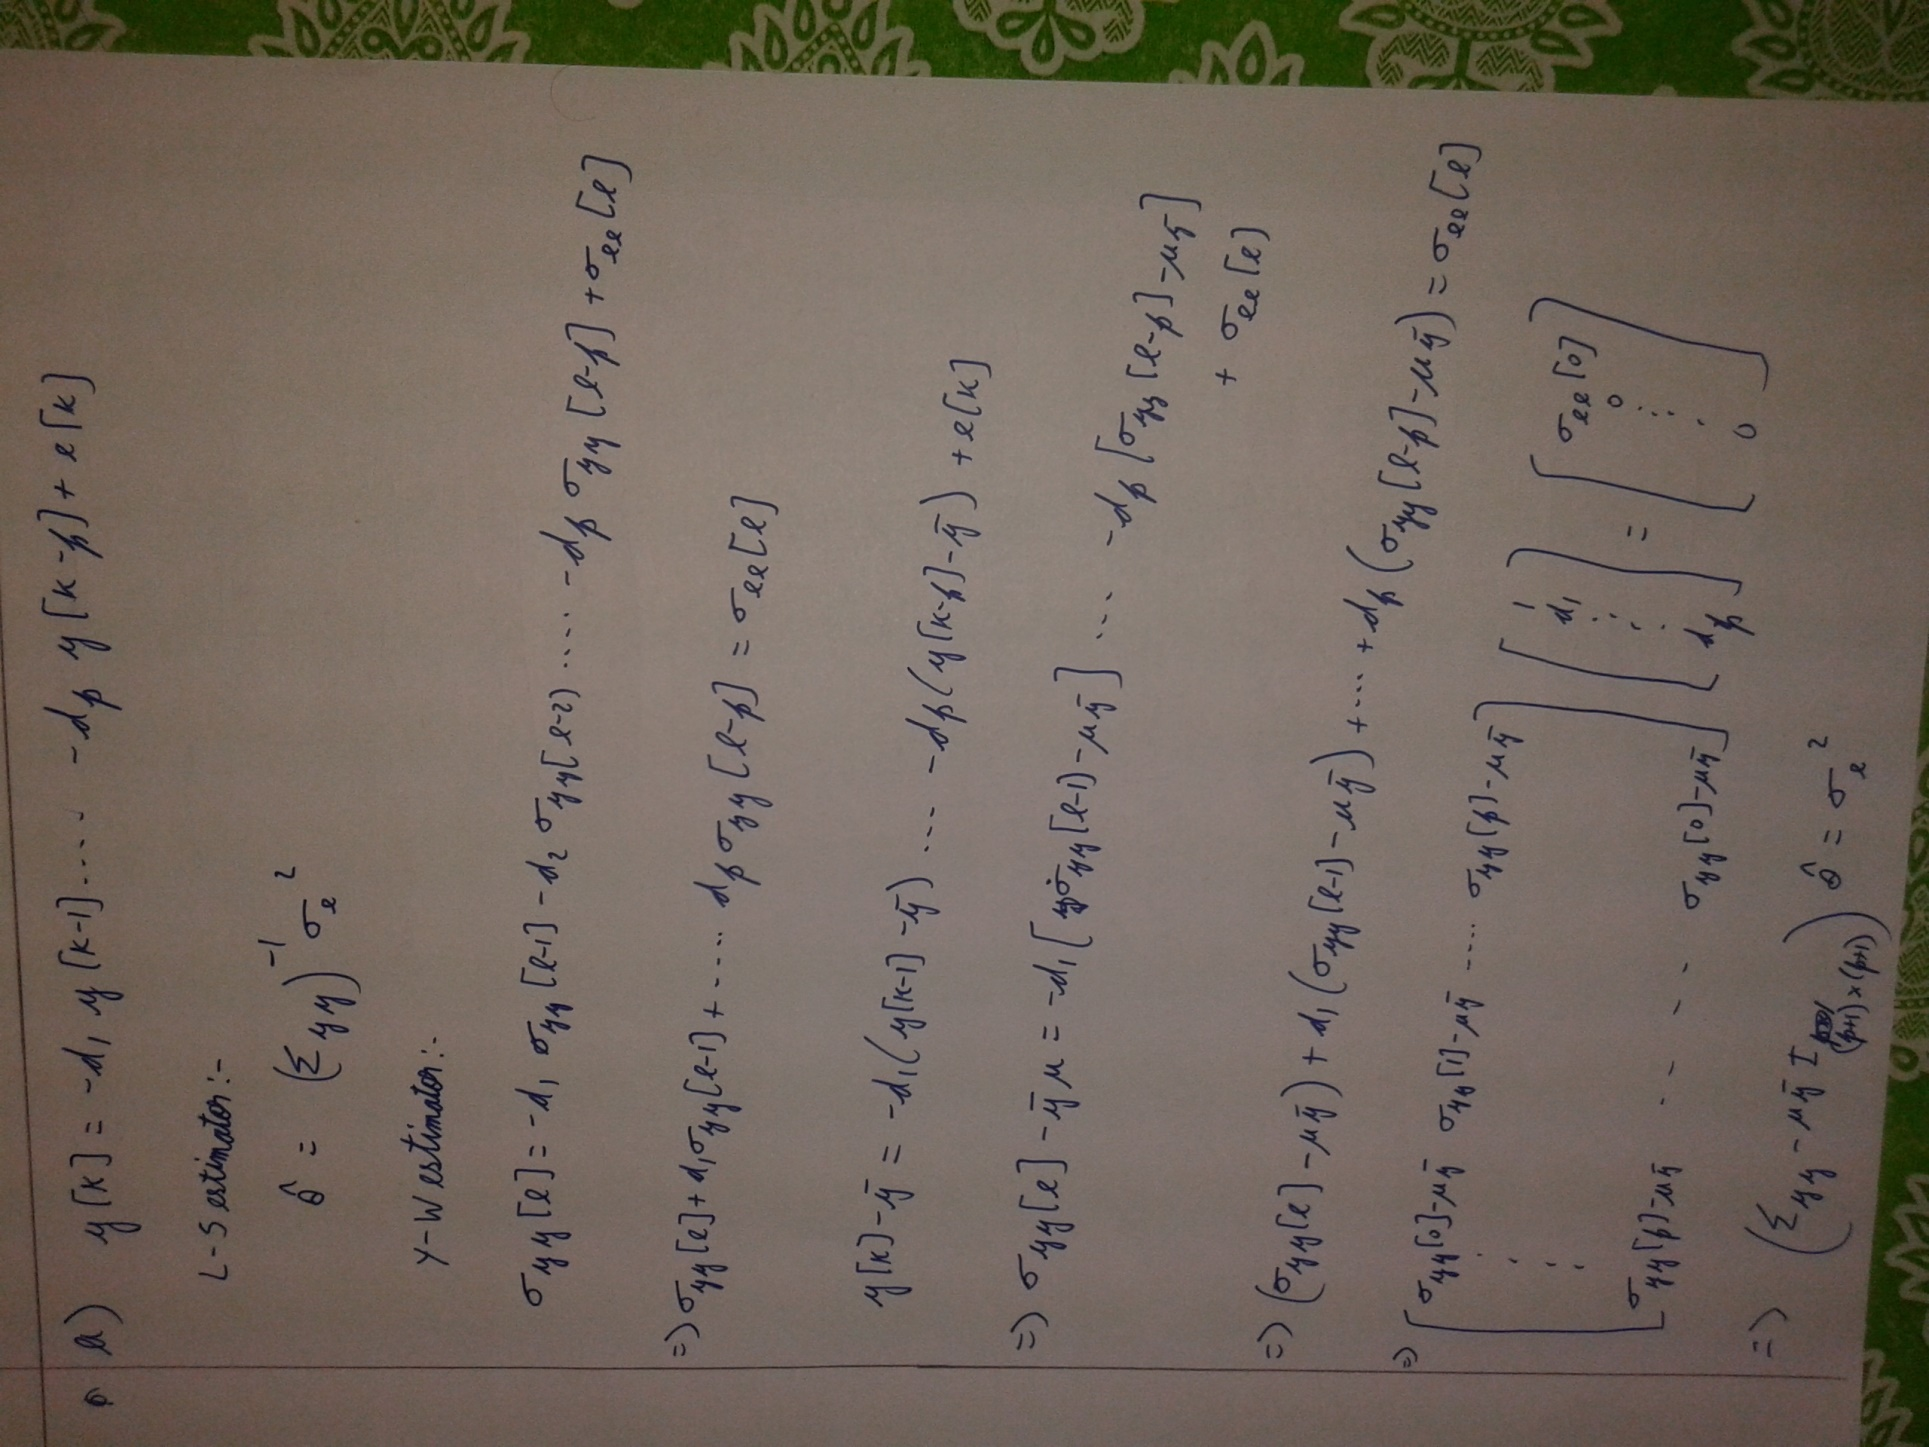 a) y[k] = -d₁ y[k-1] ..... -dₚ y[k-p] + e[k]
L-S estimator:-
θ̂ = (Σyy)⁻¹ σₑ²
Y-W estimator:-
σyy[l] = -d₁ σyy[l-1] - d₂ σyy[l-2) ..... -dₚ σyy[l-p] + σee[l]
=) σyy[l] + d₁σyy[l-1] + ..... dₚσyy[l-p] = σee[l]
y[k) - ȳ = -d₁(y[k-1] - ȳ) ... -dₚ(y[k-p] - ȳ) + e[k]
=) σyy[l] - ȳμ = -d₁[σyy[l-1) - μȳ] ... -dₚ[σyy[l-p] - μȳ]
+ σee[l)
=) (σyy[l] - μȳ) + d₁(σyy[l-1] - μȳ) + .... + dₚ(σyy[l-p] - μȳ) = σee[l]
=) [ σyy[0]-μȳ σyy[1]-μȳ .... σyy[p]-μȳ ] [ 1 ] = [ σee[0] ]
⋮ d₁ 0
⋮ ⋮ ⋮
σyy[p]-μȳ - - - - σyy[0]-μȳ dₚ 0
=) (Σyy - μȳ I (p+1)×(p+1)) θ̂ = σₑ²